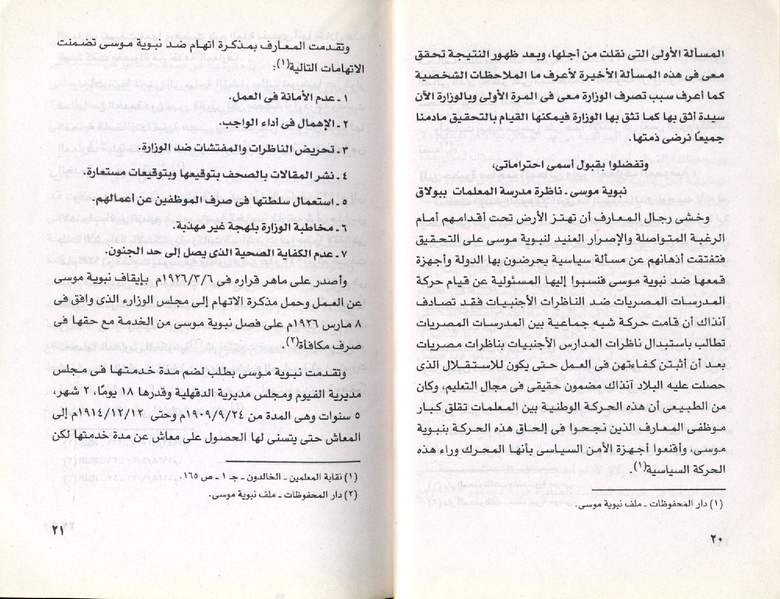 المسألة الأولى التى نقلت من أجلها، وبعد ظهور النتيجة تحقق
معى فى هذه المسألة الأخيرة لأعرف ما الملاحظات الشخصية
كما أعرف سبب تصرف الوزارة معى فى المرة الأولى وبالوزارة الآن
سيدة أثق بها كما تثق بها الوزارة فيمكنها القيام بالتحقيق مادمنا
جميعًا نرضى ذمتها.
وتفضلوا بقبول أسمى احتراماتى،
نبوية موسى ـ ناظرة مدرسة المعلمات ببولاق
وخشى رجال المعارف أن تهتز الأرض تحت أقدامهم أمام
الرغبة المتواصلة والإصرار العنيد لنبوية موسى على التحقيق
فتفتقت أذهانهم عن مسألة سياسية يحرضون بها الدولة وأجهزة
قمعها ضد نبوية موسى فنسبوا إليها المسئولية عن قيام حركة
المدرسات المصريات ضد الناظرات الأجنبيات فقد تصادف
آنذاك أن قامت حركة شبه جماعية بين المدرسات المصريات
تطالب باستبدال ناظرات المدارس الأجنبيات بناظرات مصريات
بعد أن أثبتن كفاءتهن فى العمل حتى يكون للاستقلال الذى
حصلت عليه البلاد آنذاك مضمون حقيقى فى مجال التعليم، وكان
من الطبيعى أن هذه الحركة الوطنية بين المعلمات تقلق كبار
موظفى المعارف الذين نجحوا فى إلحاق هذه الحركة بنبوية
موسى، وأقنعوا أجهزة الأمن السياسى بأنها المحرك وراء هذه
الحركة السياسية(١).
(١) دار المحفوظات ـ ملف نبوية موسى.
٢٠
وتقدمت المعارف بمذكرة اتهام ضد نبوية موسى تضمنت
الاتهامات التالية(١):
١ ـ عدم الأمانة فى العمل.
٢ ـ الإهمال فى أداء الواجب.
٣ ـ تحريض الناظرات والمفتشات ضد الوزارة.
٤ ـ نشر المقالات بالصحف بتوقيعها وبتوقيعات مستعارة.
٥ ـ استعمال سلطتها فى صرف الموظفين عن أعمالهم.
٦ ـ مخاطبة الوزارة بلهجة غير مهذبة.
٧ ـ عدم الكفاية الصحية الذى يصل إلى حد الجنون.
وأصدر على ماهر قراره فى ١٩٢٦/٣/٦م بإيقاف نبوية موسى
عن العمل وحمل مذكرة الاتهام إلى مجلس الوزارء الذى وافق فى
٨ مارس ١٩٢٦م على فصل نبوية موسى من الخدمة مع حقها فى
صرف مكافأة(٢).
وتقدمت نبوية موسى بطلب لضم مدة خدمتها فى مجلس
مديرية الفيوم ومجلس مديرية الدقهلية وقدرها ١٨ يومًا، ٢ شهر،
٥ سنوات وهى المدة من ١٩٠٩/٩/٢٤م وحتى ١٩١٤/١٢/١٢م إلى
المعاش حتى يتسنى لها الحصول على معاش عن مدة خدمتها لكن
(١) نقابة المعلمين ـ الخالدون ـ جـ ١ ـ ص ١٦٥.
(٢) دار المحفوظات ـ ملف نبوية موسى.
٢١